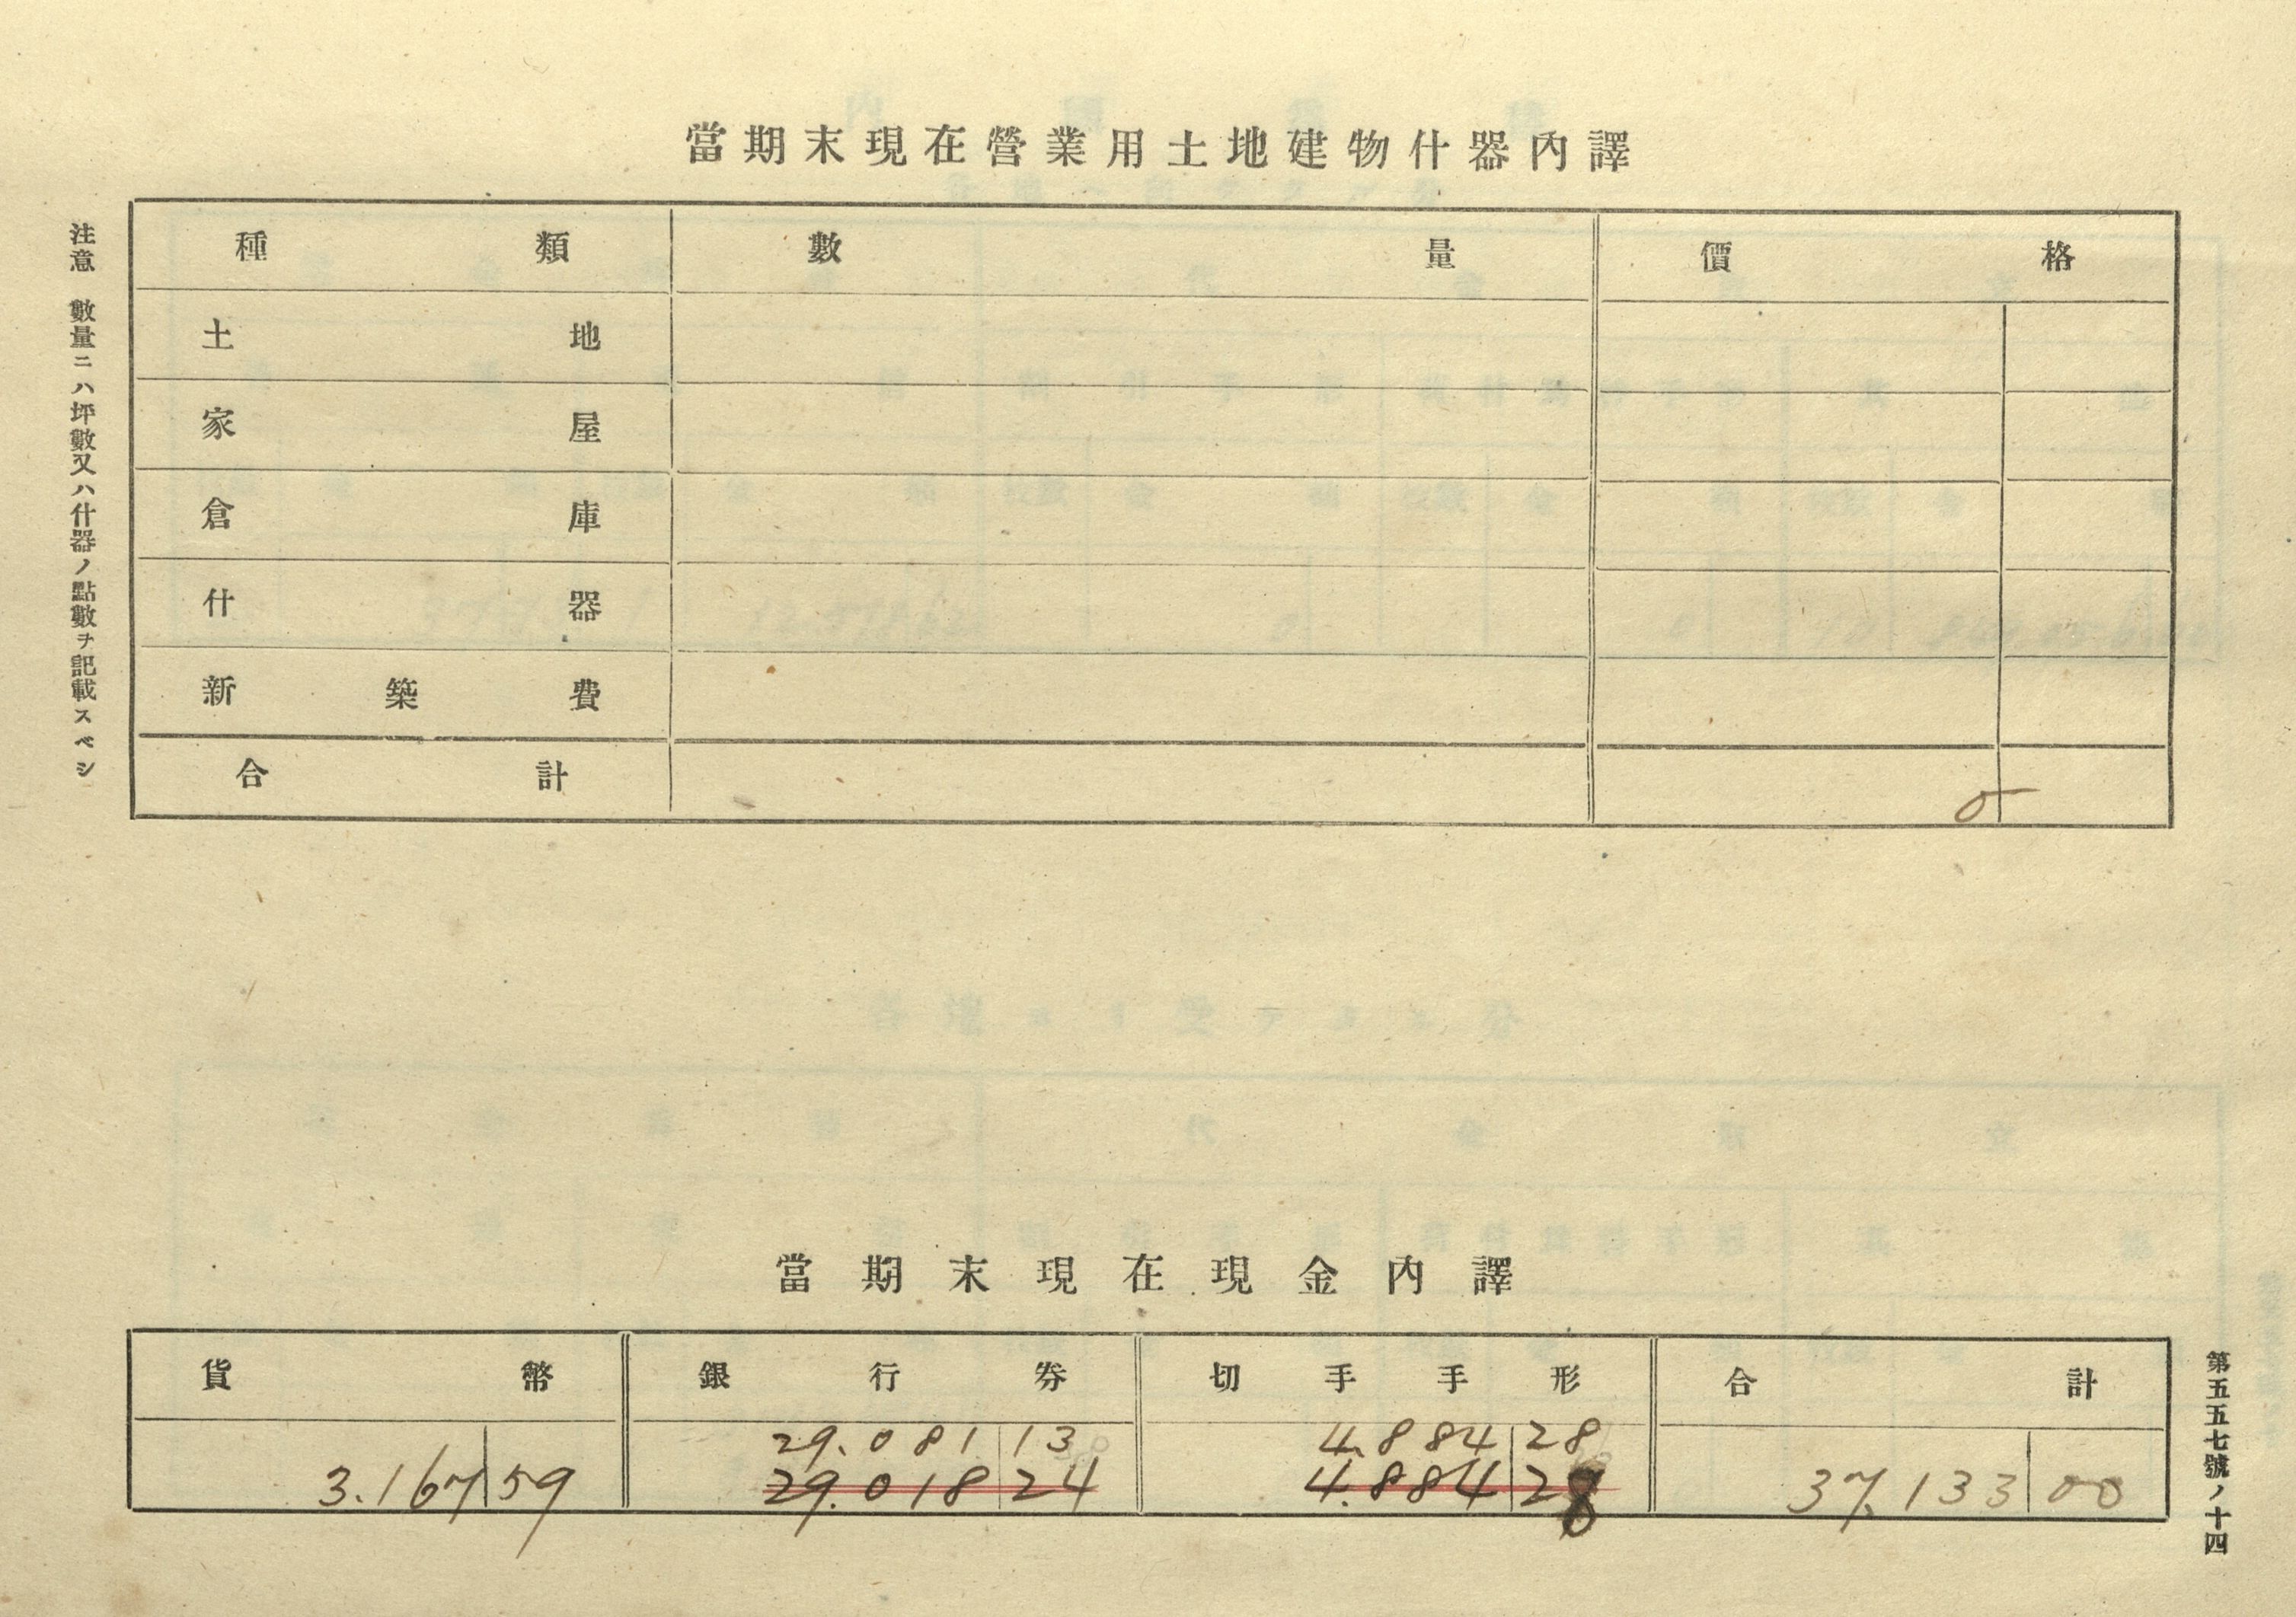 當期末現在營業用土地建物什器內譯
種類 數量 價格
土地
家屋
倉庫
什器
新築費
合計 0
注意 數量ニハ坪數又ハ什器ノ點數ヲ記載スベシ
當期末現在現金內譯
貨幣 銀行券 切手手形 合計
29.081 13 4.884 28
3.167 59 29.018 24 4.884 28 37.133 00
第五五七號ノ十四